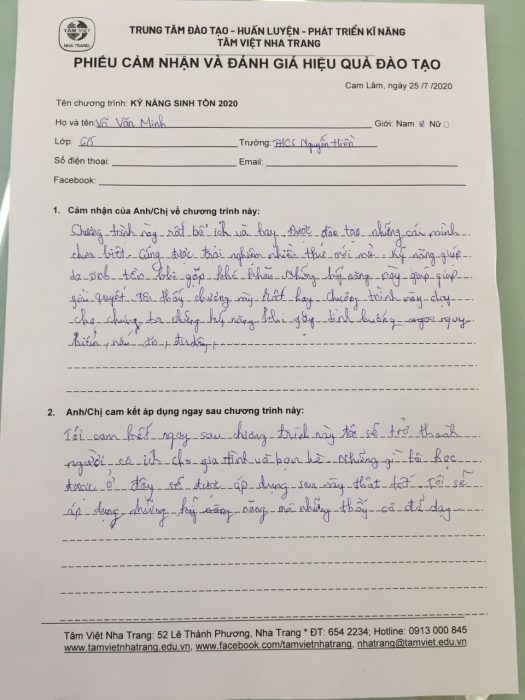 TÂM VIỆT
NHA TRANG
TRUNG TÂM ĐÀO TẠO - HUẤN LUYỆN - PHÁT TRIỂN KĨ NĂNG
TÂM VIỆT NHA TRANG
PHIẾU CẢM NHẬN VÀ ĐÁNH GIÁ HIỆU QUẢ ĐÀO TẠO
Cam Lâm, ngày 25 /7 /2020
Tên chương trình: KỸ NĂNG SINH TỒN 2020
Họ và tên: Võ Văn Minh Giới: Nam ☑ Nữ □
Lớp: Trường: THCS Nguyễn Hiền
Số điện thoại: Email:
Facebook:
1. Cảm nhận của Anh/Chị về chương trình này:
Chương trình này rất bổ ích và hay. Được đào tạo những cái mình
chưa biết. Cũng được trải nghiệm nhiều thứ mới mẻ. Kỹ năng giúp
ta sinh tồn khi gặp khó khăn. Những kỹ năng này giúp
giải quyết. Tôi thấy chương này rất hay. Chương trình này dạy
cho chúng ta những kỹ năng khi gặp tình huống nguy
hiểm, nấu ăn,
2. Anh/Chị cam kết áp dụng ngay sau chương trình này:
Tôi cam kết ngay sau chương trình này tôi sẽ trở thành
người có ích cho gia đình và bạn bè. Những gì tôi học
được ở đây sẽ được áp dụng sau này thật tốt. Tôi sẽ
áp dụng những kỹ năng mà những thầy cô đã dạy
Tâm Việt Nha Trang: 52 Lê Thành Phương, Nha Trang * ĐT: 654 2234; Hotline: 0913 000 845
www.tamvietnhatrang.edu.vn, www.facebook.com/tamvietnhatrang, nhatrang@tamviet.edu.vn